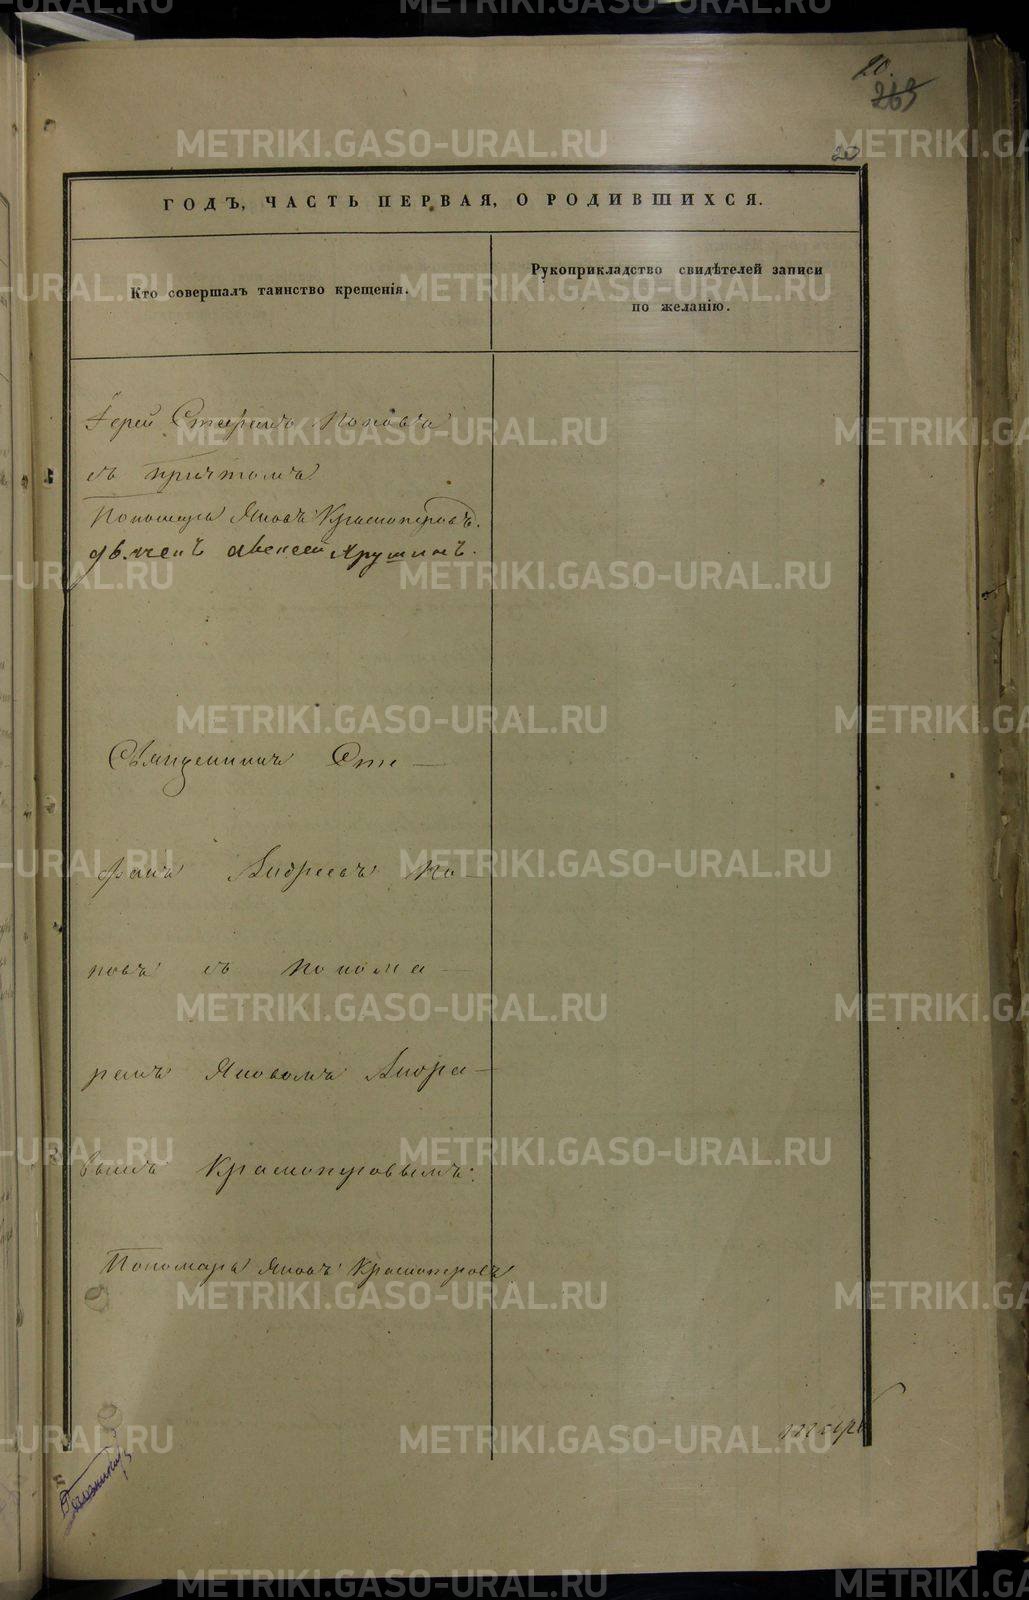 20.
263
20
ГОДЪ, ЧАСТЬ ПЕРВАЯ, О РОДИВШИХСЯ.
Кто совершалъ таинство крещенія.
Рукоприкладство свидѣтелей записи
по желанію.
Іерей Стефанъ Поповъ
съ причтомъ
Пономарь Яковъ Красноперовъ.
Алексей
Священникъ Сте—
фанъ Андреевъ По—
повъ съ понома—
ремъ Яковомъ Андре—
вымъ Красноперовымъ.
Пономарь Яковъ Красноперовъ
METRIKI.GASO-URAL.RU